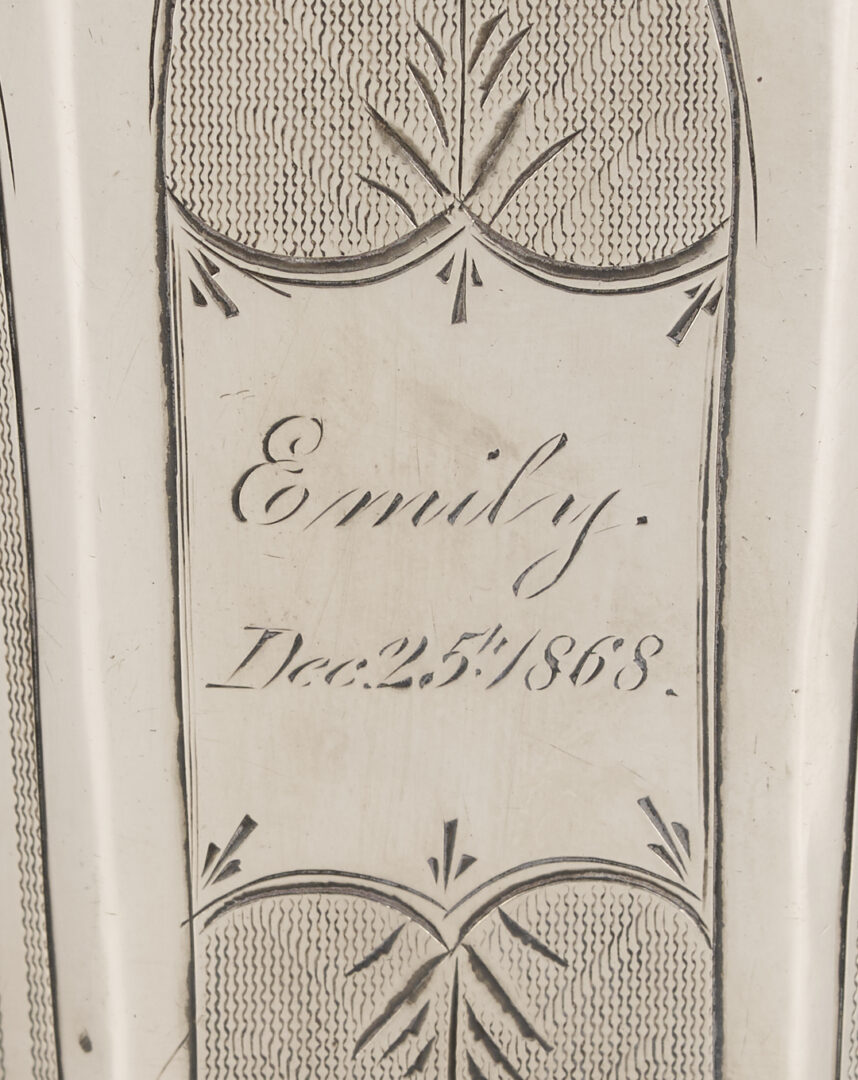 Emily.
Dec. 25th 1868.